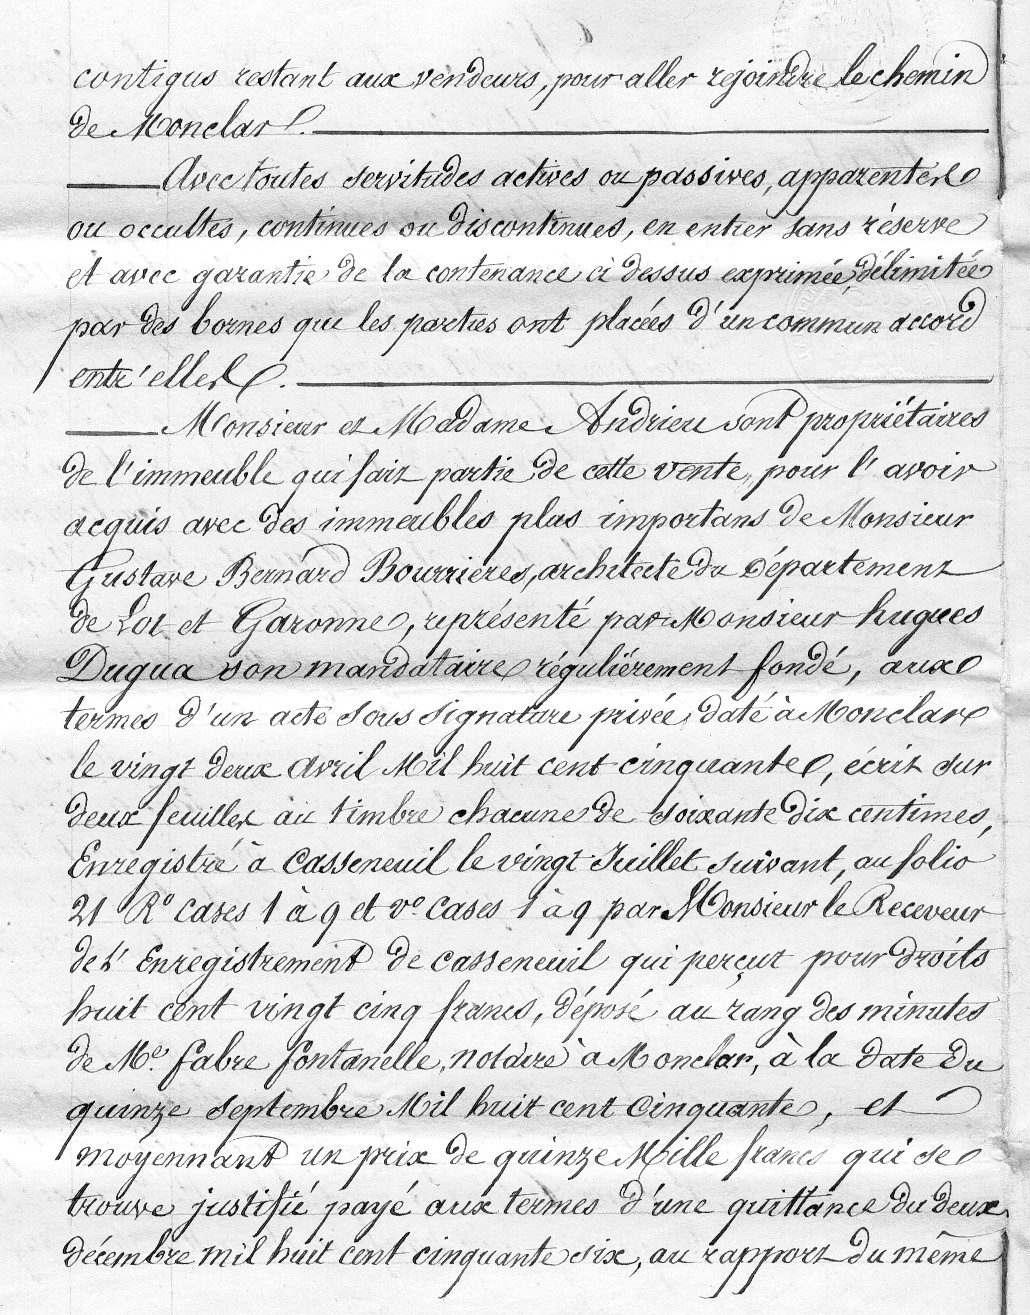 contigus restant aux vendeurs, pour aller rejoindre le chemin
de Monclar.
Avec toutes servitudes actives ou passives, apparentes
ou occultes, continues ou discontinues, en entier sans réserve
et avec garantie de la contenance ci dessus exprimée, délimitée
par des bornes que les parties ont placées d'un commun accord
entr'elles.
Monsieur et Madame Andrieu sont propriétaires
de l'immeuble qui fait partie de cette vente, pour l'avoir
acquis avec des immeubles plus importans de Monsieur
Gustave Bernard Bourrières, architecte du Département
de Lot et Garonne, représenté par Monsieur hugues
Dugua son mandataire régulièrement fondé, aux
termes d'un acte sous signature privée, daté à Monclar
le vingt deux Avril Mil huit cent cinquante, écrit sur
deux feuilles au timbre chacune de soixante dix centimes,
Enregistré à Casseneuil le vingt Juillet suivant, au folio
21 Ro cases 1 à 9 et vo cases 1 à 9 par Monsieur le Receveur
de l'Enregistrement de Casseneuil qui perçut pour droits
huit cent vingt cinq francs, déposé au rang des minutes
de Me. fabre fontanelle, notaire à Monclar, à la date du
quinze septembre Mil huit cent Cinquante, et
moyennant un prix de quinze Mille francs qui se
trouve justifié payé aux termes d'une quittance du deux
décembre mil huit cent cinquante six, au rapport du même